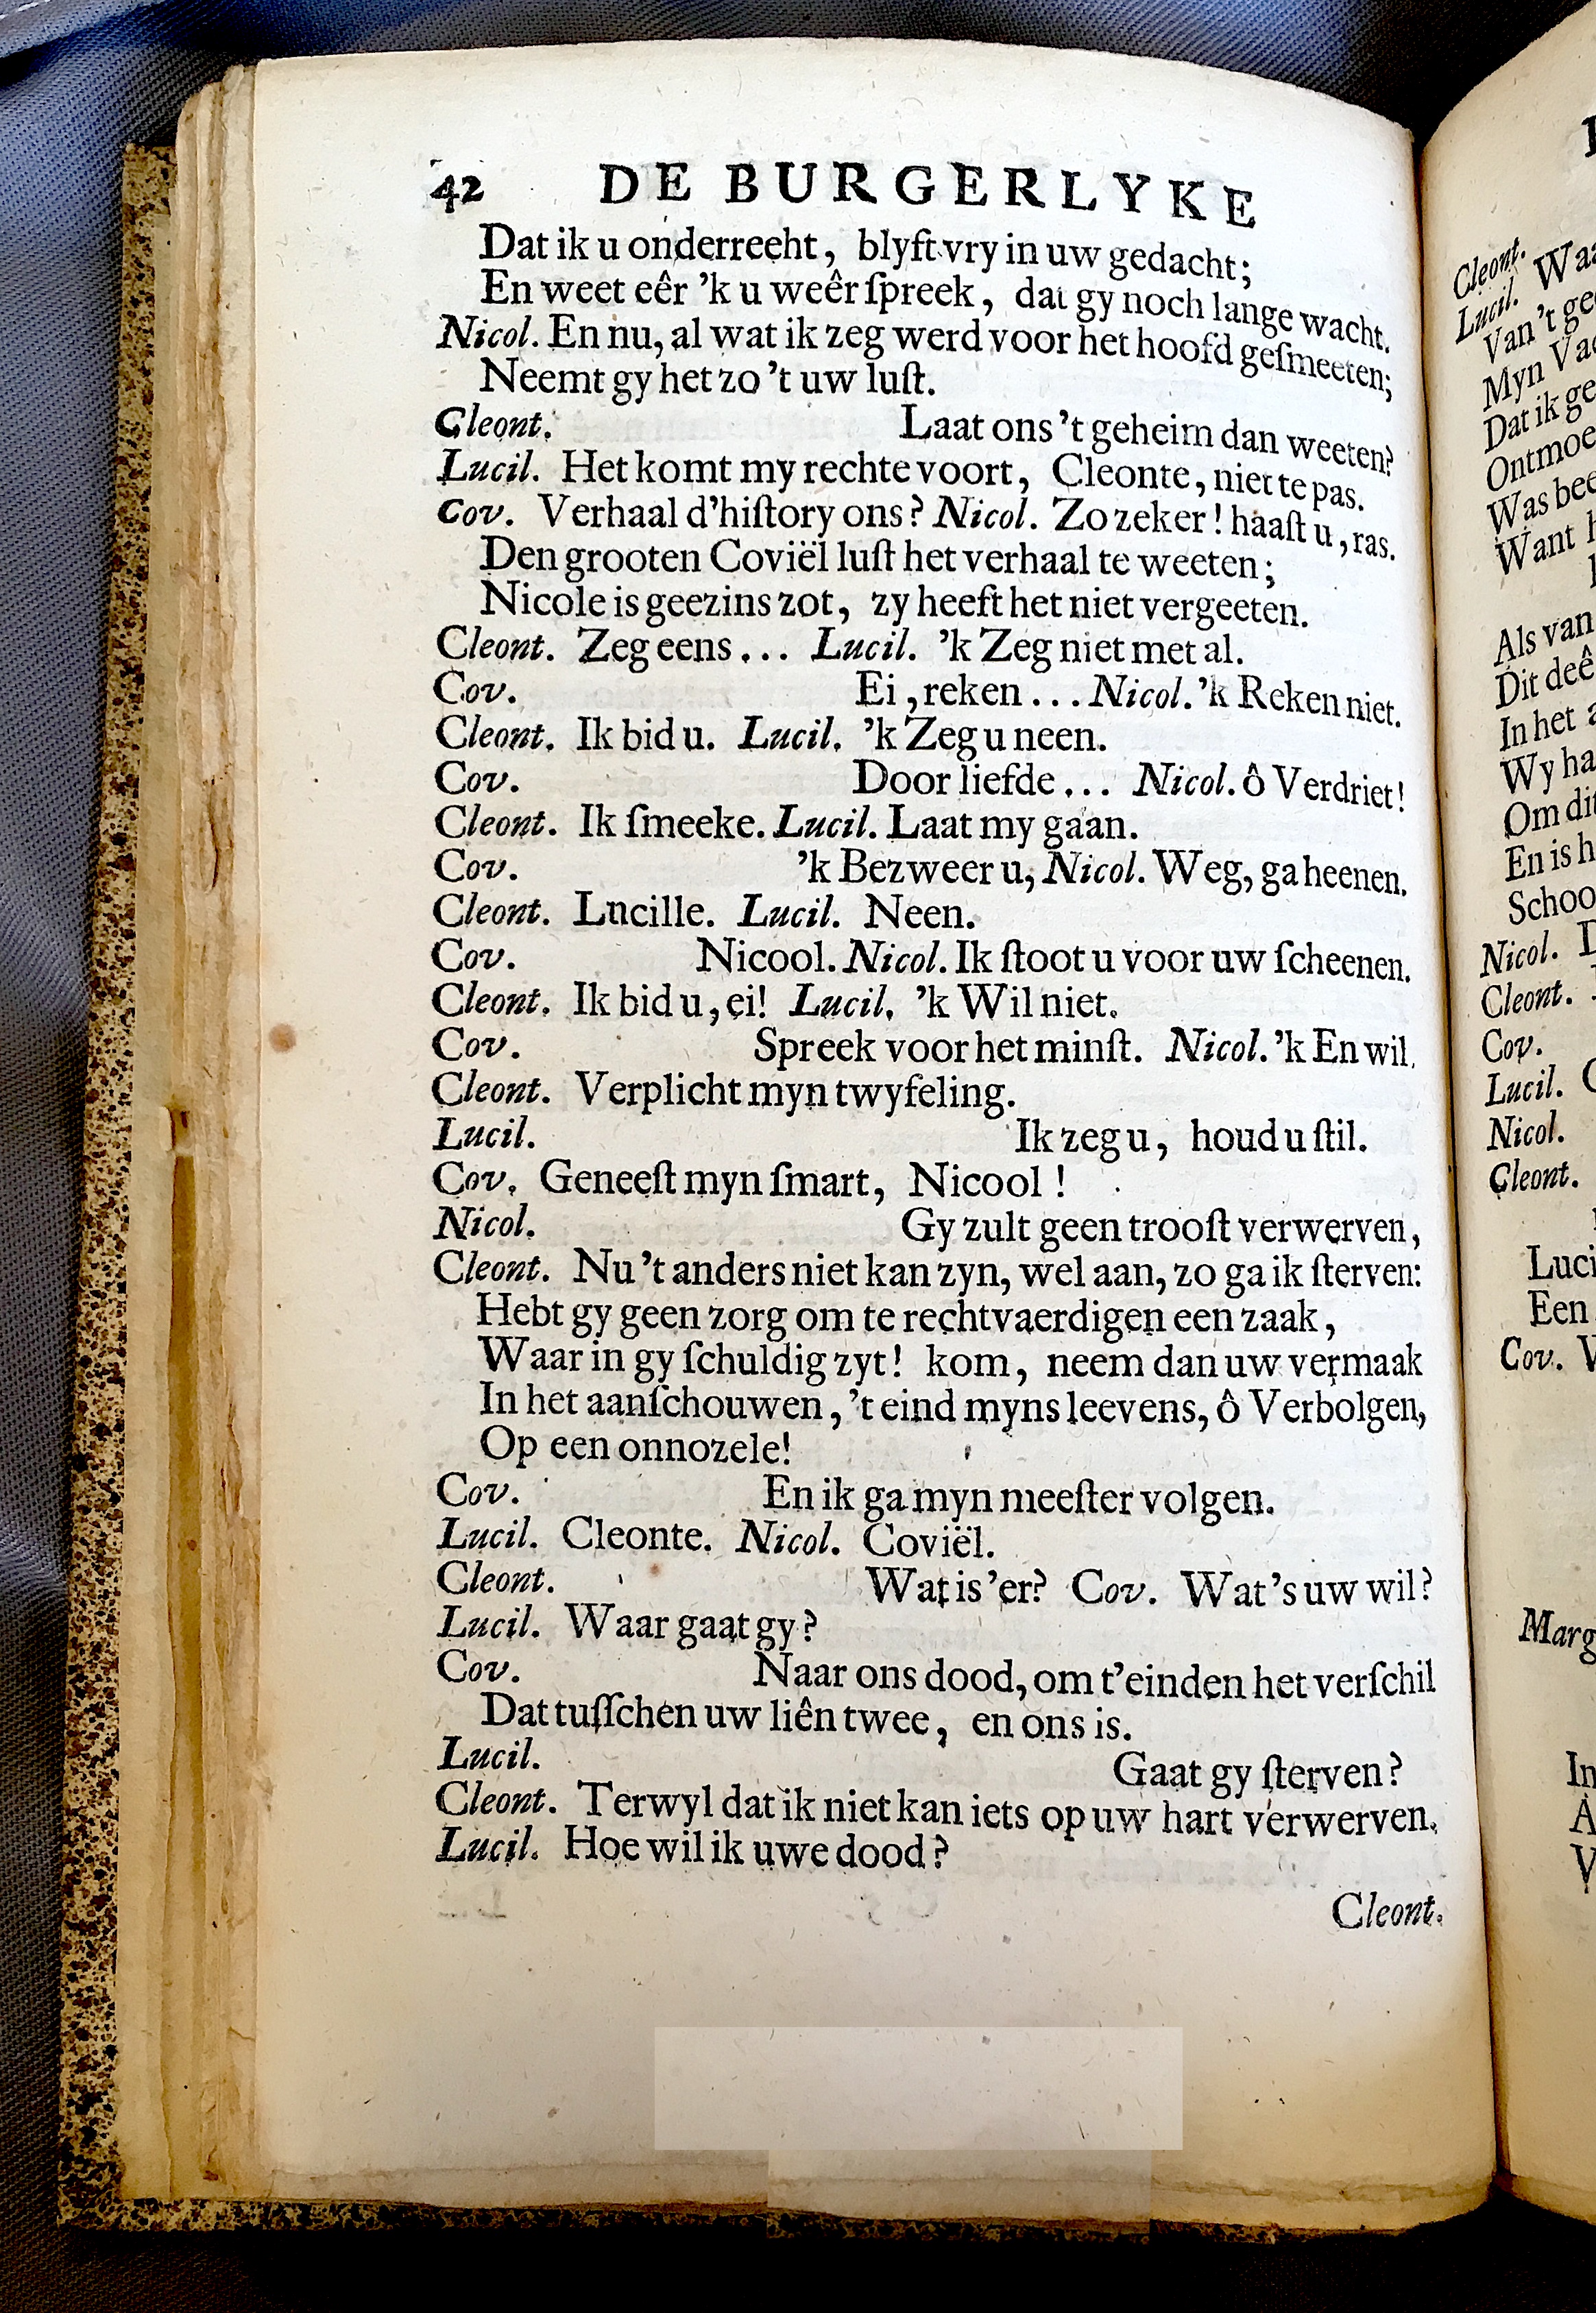 42 DE BURGERLYKE
Dat ik u onderrecht, blyft vry in uw gedacht;
En weet eêr 'k u weêr ſpreek, dat gy noch lange wacht.
Nicol. En nu, al wat ik zeg werd voor het hoofd geſmeeten;
Neemt gy het zo 't uw luſt.
Cleont. Laat ons 't geheim dan weeten?
Lucil. Het komt my rechte voort, Cleonte, niet te pas.
Cov. Verhaal d'hiſtory ons? Nicol. Zo zeker! haaſt u, ras.
Den grooten Coviël luſt het verhaal te weeten;
Nicole is geezins zot, zy heeft het niet vergeeten.
Cleont. Zeg eens... Lucil. 'k Zeg niet met al.
Cov. Ei, reken... Nicol. 'k Reken niet.
Cleont. Ik bid u. Lucil. 'k Zeg u neen.
Cov. Door liefde... Nicol. ô Verdriet!
Cleont. Ik ſmeeke. Lucil. Laat my gaan.
Cov. 'k Bezweer u, Nicol. Weg, ga heenen.
Cleont. Lncille. Lucil. Neen.
Cov. Nicool. Nicol. Ik ſtoot u voor uw ſcheenen.
Cleont. Ik bid u, ei! Lucil. 'k Wil niet.
Cov. Spreek voor het minſt. Nicol. 'k En wil.
Cleont. Verplicht myn twyfeling.
Lucil. Ik zeg u, houd u ſtil.
Cov. Geneeſt myn ſmart, Nicool!
Nicol. Gy zult geen trooſt verwerven,
Cleont. Nu 't anders niet kan zyn, wel aan, zo ga ik ſterven:
Hebt gy geen zorg om te rechtvaerdigen een zaak,
Waar in gy ſchuldig zyt! kom, neem dan uw vermaak
In het aanſchouwen, 't eind myns leevens, ô Verbolgen,
Op een onnozele!
Cov. En ik ga myn meeſter volgen.
Lucil. Cleonte. Nicol. Coviël.
Cleont. Wat is 'er? Cov. Wat 's uw wil?
Lucil. Waar gaat gy?
Cov. Naar ons dood, om t'einden het verſchil
Dat tuſſchen uw liên twee, en ons is.
Lucil. Gaat gy ſterven?
Cleont. Terwyl dat ik niet kan iets op uw hart verwerven.
Lucil. Hoe wil ik uwe dood?
Cleont.
Cleont. Waa
Lucil.
Van 't ge
Myn Va
Dat ik ge
Ontmoe
Was bee
Want
Als van
Dit deê
In het
Wy ha
Om dit
En is h
Schoo
Nicol.
Cleont.
Cov.
Lucil.
Nicol.
Cleont.
Luci
Een
Cov.
Marg
In